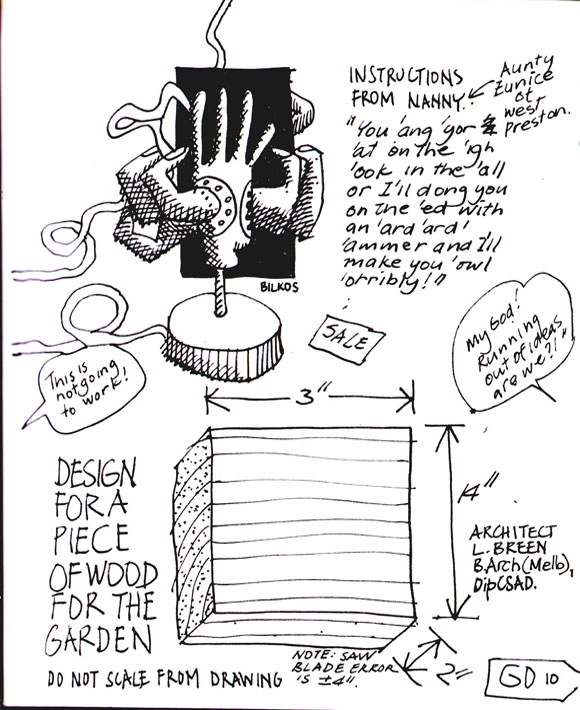 INSTRUCTIONS
FROM NANNY.
Aunty
Eunice
of
west
preston.
"You 'ang 'gor
'at on the 'igh
'ook in the 'all
or I'll dong you
on the 'ed with
an 'ard 'ard'
'ammer and I'll
make you 'owl
'orribly!"
BILKOS
SALE
My God!
Running
out of ideas
are we?!"
This is
not going
to work!
3"
14"
DESIGN
FOR A
PIECE
OF WOOD
FOR THE
GARDEN
ARCHITECT
L. BREEN
B.Arch (Melb),
DipCSAD.
NOTE: SAW
BLADE ERROR
IS ±4".
2"
DO NOT SCALE FROM DRAWING
GD 10